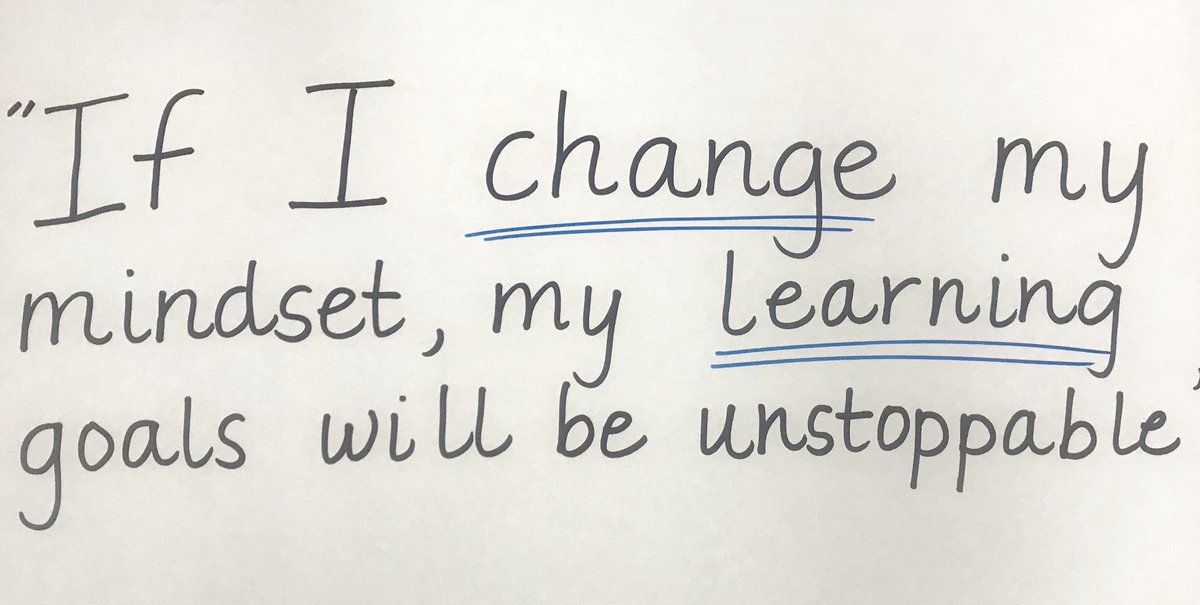 "If I change my
mindset, my learning
goals will be unstoppable